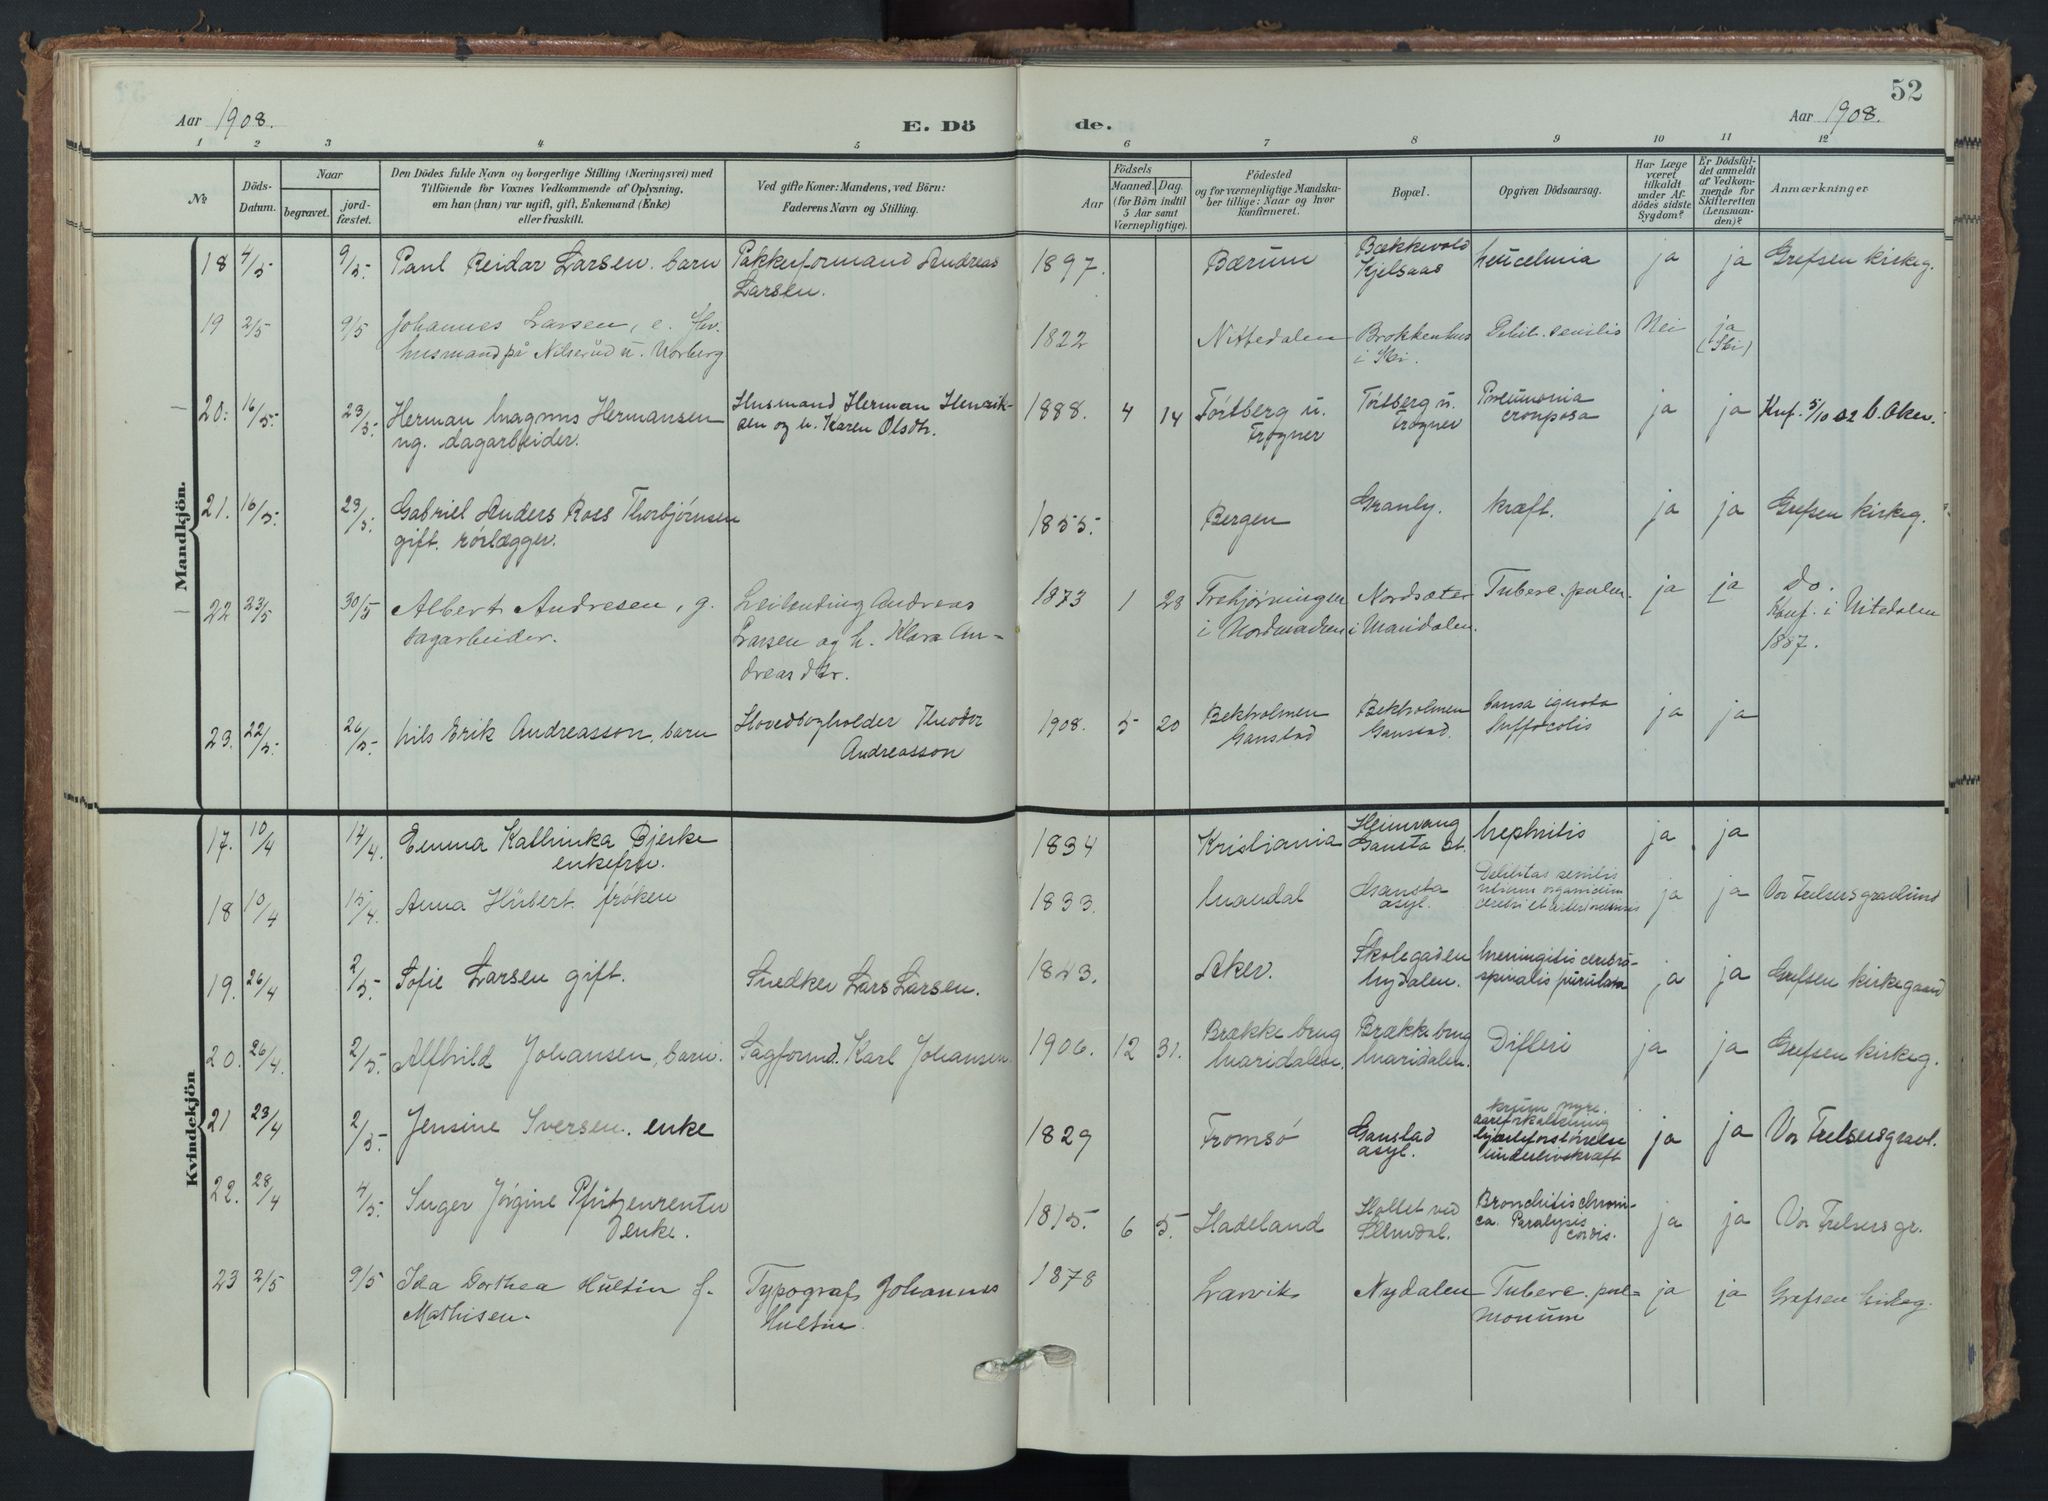 52
Aar 1908.
E. Dö
de.
Aar 1908.
1 2 3 4 5 6 7 8 9 10 11 12
No
Döds-
Datum.
Naar
begravet.
jord-
fæstet.
Den Dödes fulde Navn og borgerlige Stilling (Næringsvei) med
Tilföiende for Voxnes Vedkommende af Oplysning,
om han (hun) var ugift, gift, Enkemand (Enke)
eller fraskilt.
Ved gifte Koner: Mandens, ved Börn:
Faderens Navn og Stilling.
Födsels
Aar
Maaned.
Dag.
(for Börn indtil
5 Aar samt
Værnepligtige).
Födested
og for værnepligtige Mandska-
ber tillige: Naar og hvor
konfirmeret.
Bopæl.
Opgiven Dödsaarsag.
Har Læge
været
tilkaldt
under Af-
dödes sidste
Sygdom?
Er Dödsfal-
det anmeldt
af Vedkom-
mende for
Skifteretten
(Lensman-
den)?
Anmærkninger
Mandkjön.
18 4/5 9/5. Paul Reidar Larsen. barn Pakkeformand Andreas
Larsen.
1897. Bærum Bækkevold
Kjelsaas
ja ja Grefsen kirkeg.
19 2/5 9/5 Johannes Larsen, e.
husmand på Nilserud u.
1822 Nittedalen Brokkenhus
i Ski.
Debil. senilis Nei ja
(Ski)
20. 16/5. 23/5. Herman Magnus Hermansen
ug. dagarbeider.
Husmand Herman Henrik-
sen og h. Karen Olsdtr.
1888. 4 14 Tórtberg u.
Frogner
Tórtberg u.
Frogner
Pneumonia
crouposa
ja ja Knf. 5/10 02 b. Aker.
21. 16/5. 23/5. Gabriel Anders Ross Thorbjørnsen
gift. rørlægger.
1855. Bergen Granly. kræft. ja ja Grefsen kirkeg.
22 23/5 30/5 Albert Andresen, g.
sagarbeider.
Leilending Andreas
Larsen og h. Klara An-
dreasdtr.
1873 1 28 Trehjørningen
i Nordmarken
Nordsæter
i Maridalen.
Tuberc. pulm. ja ja do.
Konf. i Nitedalen
1887.
23. 22/5. 26/5. Nils Erik Andreasson, barn Hovedbogholder Theodor
Andreasson
1908. 5 20 Bekholmen
Gaustad
Bekholmen
Gaustad.
Causa ignota
ja ja
Kvindekjön
17. 10/4 14/4. Emma Kathinka Bjerke
enkefru.
1834 Kristiania Heimvang
Gausta st.
Nephritis ja ja
18 10/4 15/4. Anna Hübert. frøken
1833. Mandal Gausta
asyl.
Debilitas senilis
ja ja Vor Frelsers gravlund
19. 26/4 2/5. Sofie Larsen gift. Snedker Lars Larsen.
1843. Aker. Skolegaden
Nydalen.
Meningitis cerebro-
spinalis purulata
ja ja Grefsen kirkegaard
20. 26/4. 2/5. Alfhild Johansen, barn. Sagformd. Karl Johansen.
1906. 12 31. Brække brug
Maridalen.
Brække brug
Maridalen.
Difteri ja ja Grefsen kirkeg.
21 23/4 2/5. Jensine Iversen. enke
1829 Tromsø Gaustad
asyl.
aareforkalkning
hjerteforstørrelse
underlivskræft
ja ja Vor Frelsers gravl.
22. 28/4 4/5. Inger Jørgine Pfützenreuter
enke.
1815. 6 5. Hadeland
Slemdal.
Bronchitis chroni-
ca. Paralyses
cordis.
ja ja Vor Frelsers gr.
23 2/5 9/5 Ida Dorthea Hultin f.
Mathisen.
Typograf Johannes
Hultin.
1878 Larvik Nydalen Tuberc. pul-
monum
ja ja Grefsen kirkeg.